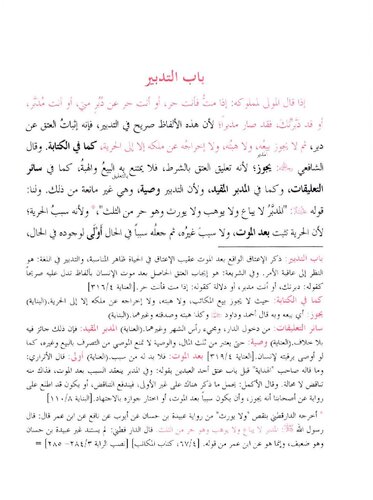 باب التدبير
إذا قال المولى لمملوكه: إذا متُّ فأنت حر، أو أنت حر عن دُبُرٍ مني، أو أنت مُدبَّر،
أو قد دَبَّرتُك، فقد صار مدبراً؛ لأن هذه الألفاظ صريح في التدبير، فإنه إثباتُ العتق عن
دبر، ثم لا يجوز بيعُه، ولا هبتُه، ولا إخراجُه عن ملكه إلا إلى الحرية، كما في الكتابة. وقال
مدبر
الشافعي رحمه الله: يجوز؛ لأنه تعليق العتق بالشرط، فلا يمتنع به البيعُ والهبةُ، كما في سائر
بالتعليق
التعليقات، وكما في المدبر المقيد، ولأن التدبير وصية، وهي غير مانعة من ذلك. ولنا:
قوله ﷺ: "المدبَّرُ لا يباع ولا يوهب ولا يورث وهو حر من الثلث"،* ولأنه سببُ الحرية؛
لأن الحرية تثبت بعد الموت، ولا سببَ غيرُه، ثم جعلُه سبباً في الحال أَوْلى لوجوده في الحال،
باب التدبير: ذكر الإعتاق الواقع بعد الموت عقيب الإعتاق في الحياة ظاهر المناسبة، والتدبير في اللغة: هو
النظر إلى عاقبة الأمر. وفي الشريعة: هو إيجاب العتق الحاصل بعد موت الإنسان بألفاظ تدل عليه صريحاً
كقوله: دبرتك، أو أنت مدبر، أو دلالة كقوله: إذا مت فأنت حر. [العناية ٣١٦/٤]
كما في الكتابة: حيث لا يجوز بيع المكاتب، ولا هبته، ولا إخراجه عن ملكه إلا إلى الحرية.(البناية)
يجوز: أي بيعه وبه قال أحمد وداود وكذا: هبته وصدقته وغيرهما.(البناية)
سائر التعليقات: من دخول الدار، ومجيء رأس الشهر وغيرهما.(العناية) المدبر المقيد: فإن ذلك جائز فيه
بلا خلاف.(العناية) وصية: حتى يعتبر من ثلث المال، والوصية لا تمنع الموصي من التصرف بالبيع وغيره، كما
لو أوصى برقبته لإنسان.[العناية ٣١٩/٤] بعد الموت: فلا بد له من سبب.(العناية) أولى: قال الأتراري:
وما قاله صاحب "الهداية" قبل باب عتق أحد العبدين بقوله: وفي المدبر ينعقد السبب بعد الموت، فذاك منه
تناقض لا محالة. وقال الأكمل: يحمل ما ذكر هناك على غير الأولى، فيندفع التناقض، أو يكون قد اطلع على
رواية عن أصحابنا أنه يجوز، أن يكون سبباً بعد الموت، أو اختار جوازه بالاجتهاد.[البناية ١١٠/٨]
* أخرجه الدارقطني بنقص "ولا يورث" من رواية عبيدة بن حسان عن أيوب عن نافع عن ابن عمر قال: قال
رسول الله ﷺ المدبر لا يباع ولا يوهب وهو حر من الثلث. قال الدار قطني: لم يسند غير عبيدة بن حسان
وهو ضعيف، وإنما هو عن ابن عمر من قوله. [٦٧/٤، كتاب المكاتب] [نصب الراية ٢٨٤/٣-٢٨٥] =